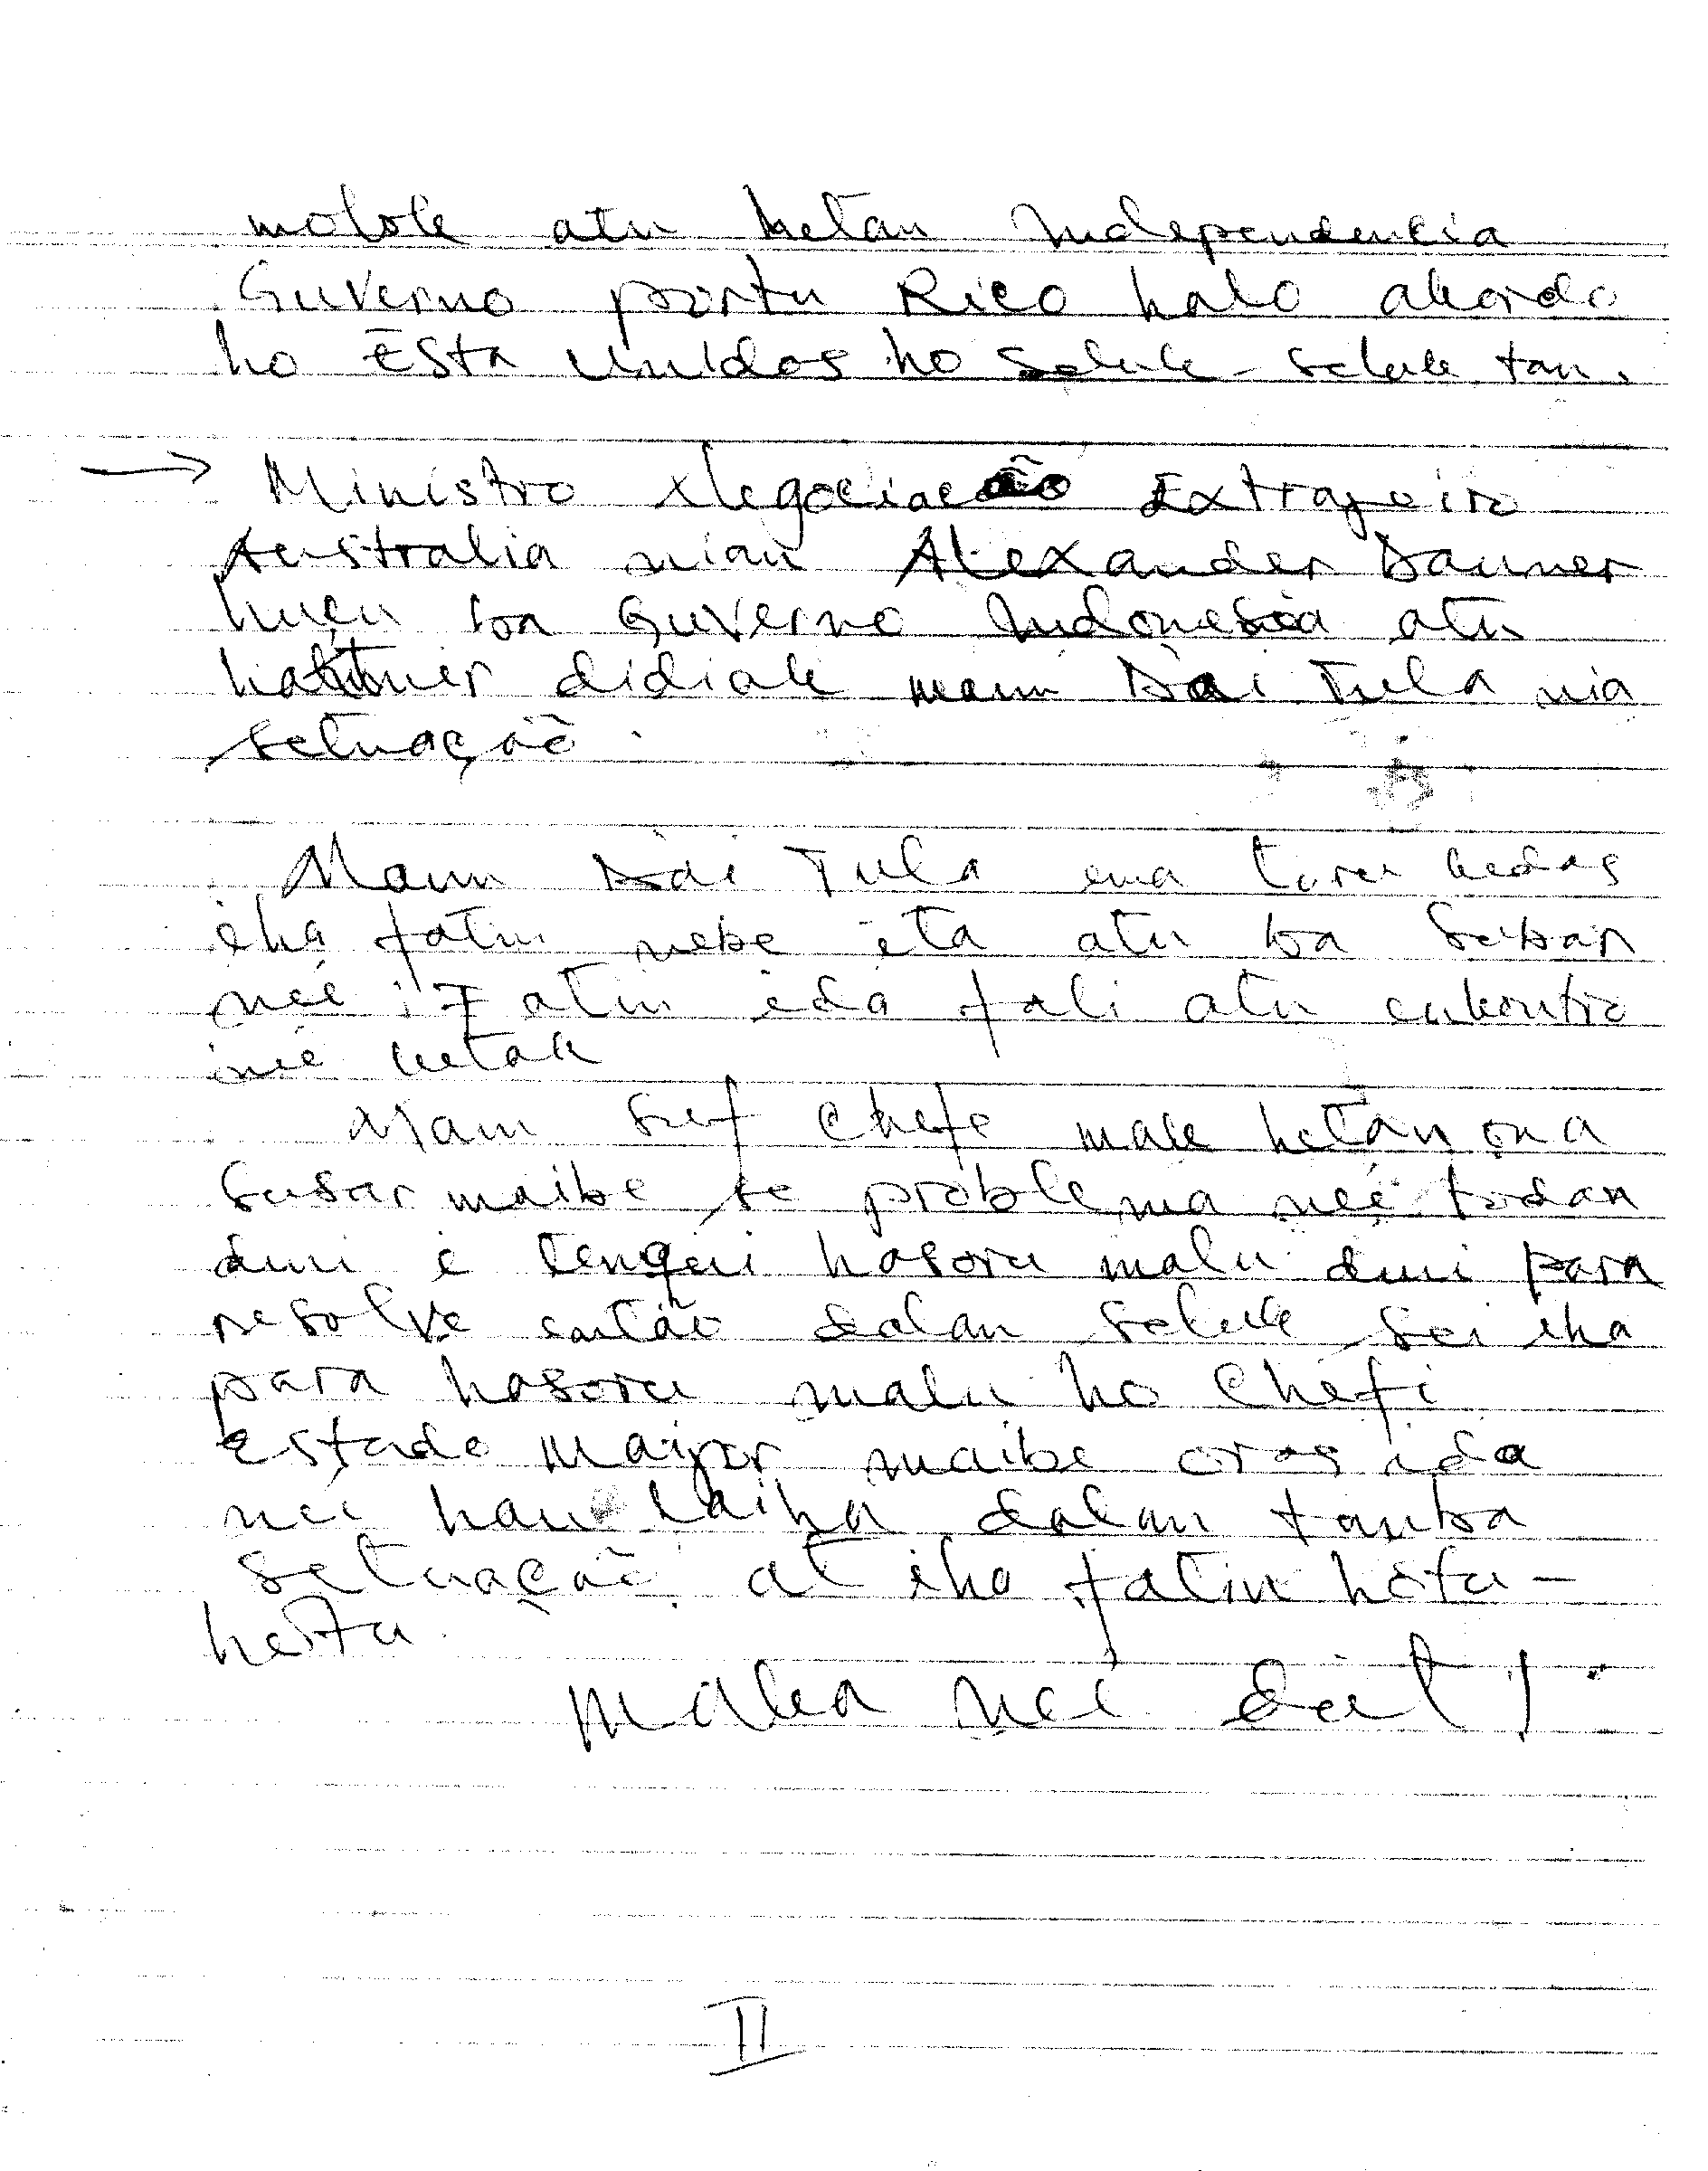 molok atu hetan Independencia
Guverno portu Rico halo akordo
ho Esta Unidos ho seluk-seluk tan.
→ Ministro Negociacão Extrajeiro
Australia nian Alexander Dauner
husu ba Guverno Indonesia atu
didiak maun Dai Tula nia
setuação.
Maun Dai Tula ema tora kedas
iha fatin nebe ita atu ba Subar
neé; Fatin ida fali atu enkontro
neé ketak
Maun Sref Chefe mak hetan ona
susar maibe se problema neé todan
duni e tenqui hasoru malu duni para
resolve então dalan seluk sei iha
para hasoru malu ho Chefi
Estado Maior maibe oras ida
neé hau laiha dalan tamba
setuação at iha fatin hotu-
hotu.
Maka neé deit!
II